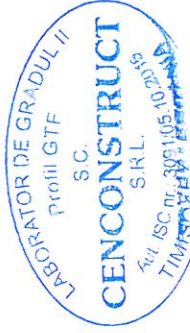 LABORATOR DE GRADUL II
Profil GTF
S.C.
CENCONSTRUCT
S.R.L.
Aut. ISC nr. 3091/05.10.2015